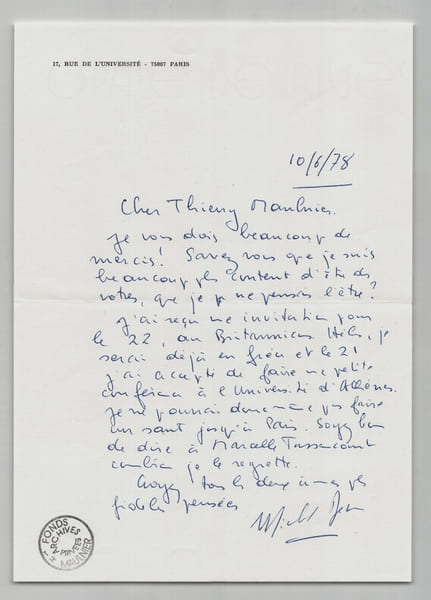 17, RUE DE L'UNIVERSITÉ - 75007 PARIS
10/6/78
Cher Thierry Maulnier,
je vous dois beaucoup de
mercis! Savez vous que je suis
beaucoup plus content d'être des
vôtres, que je ne pensais l'être?
J'ai reçu une invitation pour
le 22, au Britannicus. Hélas, je
serai déjà en Grèce et le 21
j'ai accepté de faire une petite
conférence à l'Université d'Athènes.
Je ne pourrai donc pas faire
un saut jusqu'à Paris. Soyez bon
de dire à Marcelle Tassencourt
combien je le regrette.
Croyez tous les deux à mes plus
fidèles pensées
Michel
FONDS
ARCHIVES
PRIVÉES
MAULNIER